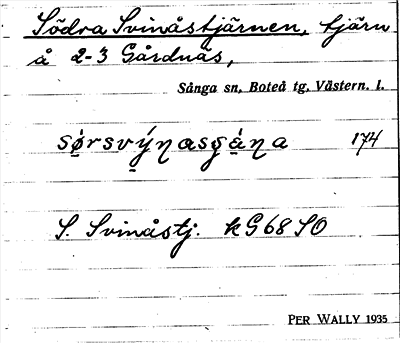 Södra Svinåstjärnen, tjärn
å 2-3 Gårdnäs,
Sånga sn, Boteå tg, Västern. l.
sǿrsvýŋasʂáŋa 174
S. Svinåstj. kG68SO
PER WALLY 1935